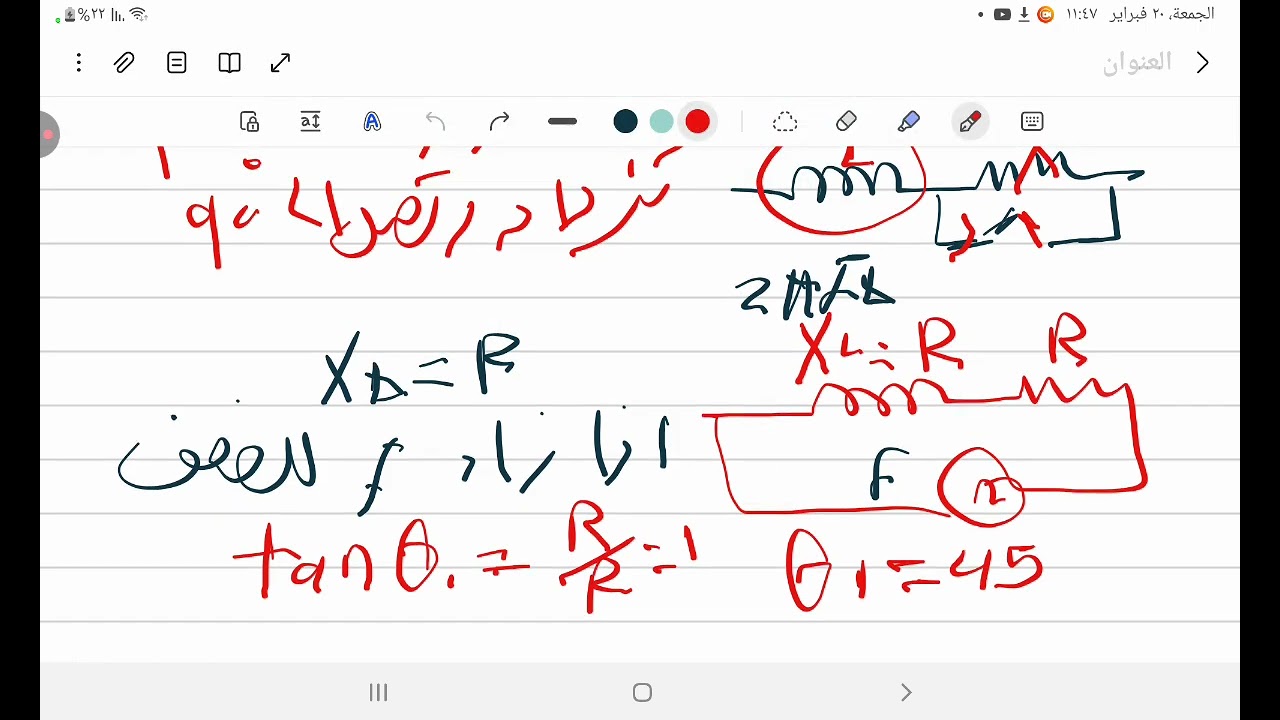 الجمعة، ٢٠ فبراير ١١:٤٧
٢٢%
العنوان
تزداد زاوية من ٠ لـ ٩٠
2πfL
X_L = R
X_L = R R
اذا زاد f للضعف
f
tan θ₁ = R/R = 1 θ₁ = 45